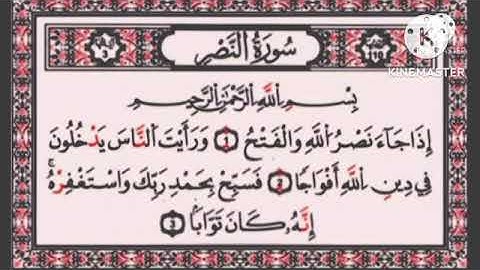 سُورَةُ النَّصْرِ
بِسْمِ اللَّهِ الرَّحْمَٰنِ الرَّحِيمِ
إِذَا جَآءَ نَصْرُ اللَّهِ وَالْفَتْحُ ١ وَرَأَيْتَ النَّاسَ يَدْخُلُونَ
فِي دِينِ اللَّهِ أَفْوَاجًا ٢ فَسَبِّحْ بِحَمْدِ رَبِّكَ وَاسْتَغْفِرْهُ ۚ
إِنَّهُ كَانَ تَوَّابًا ٣
KINEMASTER